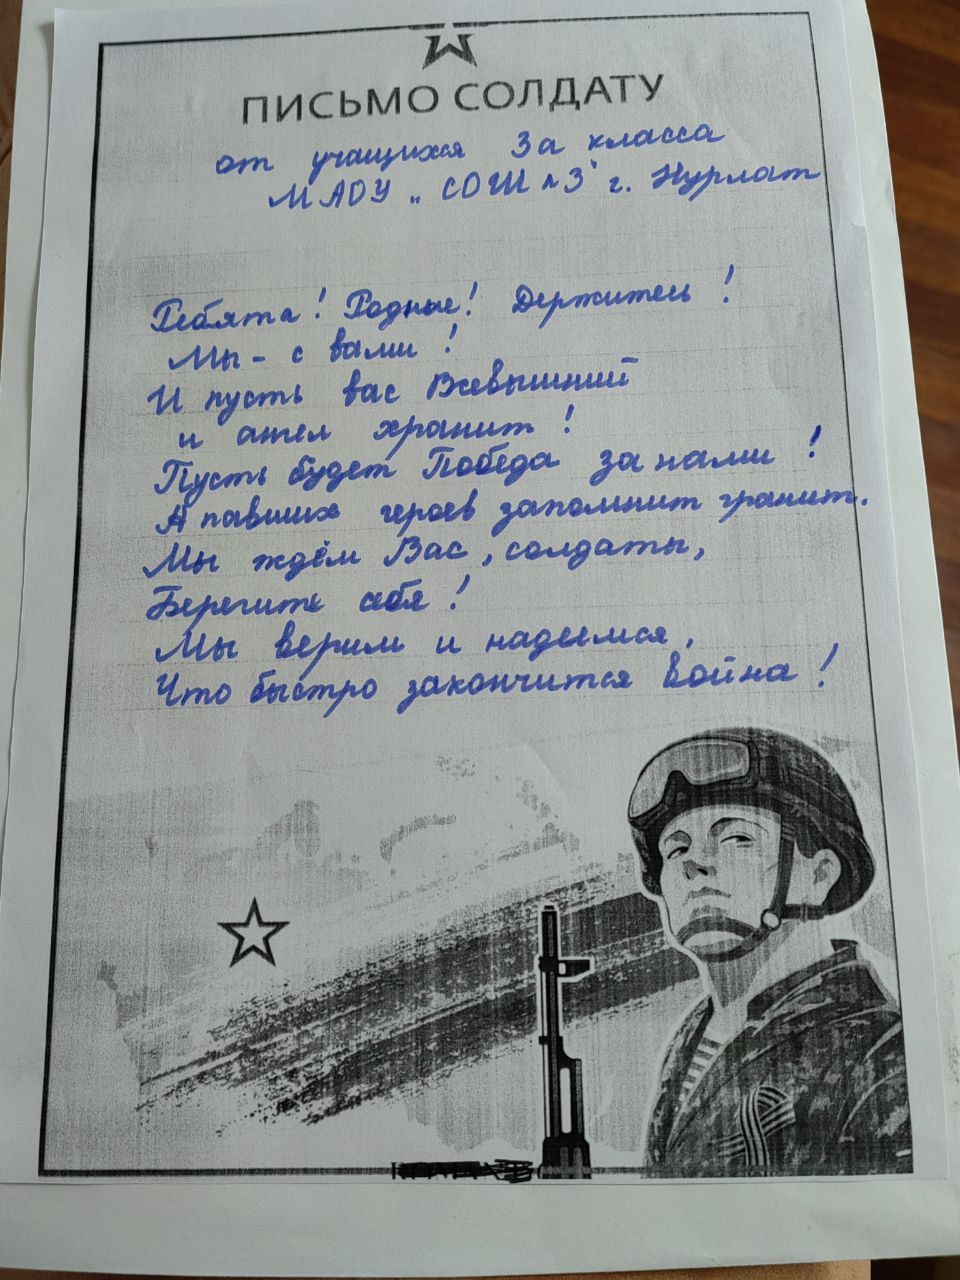 ПИСЬМО СОЛДАТУ
от учащихся 3а класса
МАОУ „СОШ №3" г. Нурлат
Ребята! Родные! Держитесь!
Мы - с вами!
И пусть вас Всевышний
и ангел хранит!
Пусть будет Победа за нами!
А павших героев запомнит гранит.
Мы ждём Вас, солдаты,
Берегите себя!
Мы верим и надеемся,
Что быстро закончится война!